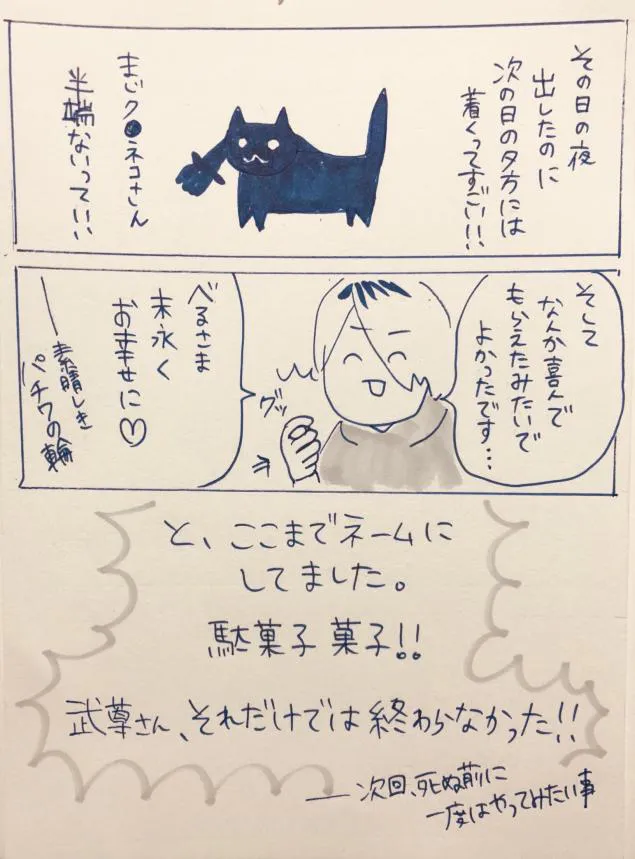 その日の夜
出したのに
次の日の夕方には
着くってすごい!!
まじク●ネコさん
半端ないっていい
そして
なんか喜んで
もらえたみたいで
よかったです…
グッ
べるさま
末永く
お幸せに♡
―素晴しき
パチワの輪
と、ここまでネームに
してました。
駄菓子菓子!!
武尊さん、それだけでは終わらなかった!!
―次回、死ぬ前に
一度はやってみたい事